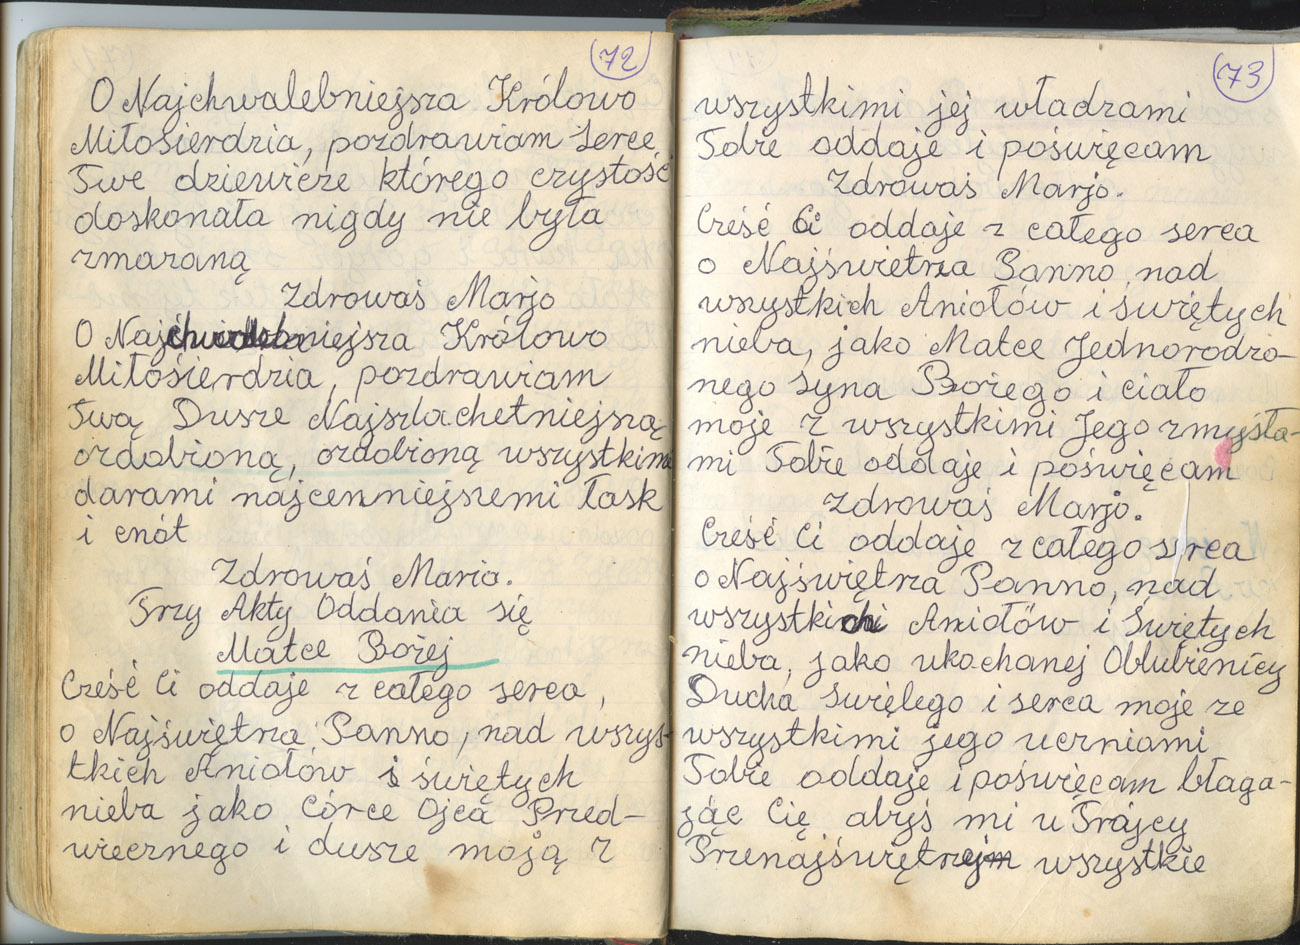 72
O Najchwalebniejsza Królowo
Miłosierdzia, pozdrawiam serce
Twe dziewicze którego czystość
doskonała nigdy nie była
zmazaną
Zdrowaś Marjo
O Najchwalebniejsza Królowo
Miłosierdzia, pozdrawiam
Twą Dusze Najszlachetniejszą
ozdobioną, ozdobioną wszystkimi
darami najcenniejszemi łask
i cnót
Zdrowaś Maria.
Trzy Akty Oddania się
Matce Bożej
Cześć Ci oddaje z całego serca,
o Najświętrza Panno, nad wszys-
tkich Aniołów i świętych
nieba jako Córce Ojca Przed-
wiecznego i dusze moją z
73
wszystkimi jej władzami
Tobie oddaje i poświęcam
Zdrowaś Marjo.
Cześć Ci oddaje z całego serca
o Najświetrza Panno, nad
wszystkich Aniołów i świętych
nieba, jako Matce Jednorodzo-
nego Syna Bożego i ciało
moje z wszystkimi Jego zmysła-
mi Tobie oddaje i poświęcam
Zdrowaś Marjo.
Cześć Ci oddaje z całego serca
o Najświętrza Panno, nad
wszystkich Aniołów i Świętych
nieba, jako ukochanej Oblubienicy
Ducha Świętego i serca moje ze
wszystkimi jego uczniami
Tobie oddaje i poświęcam błaga-
jąc Cię abyś mi u Trójcy
Przenajświętrzejm wszystkie